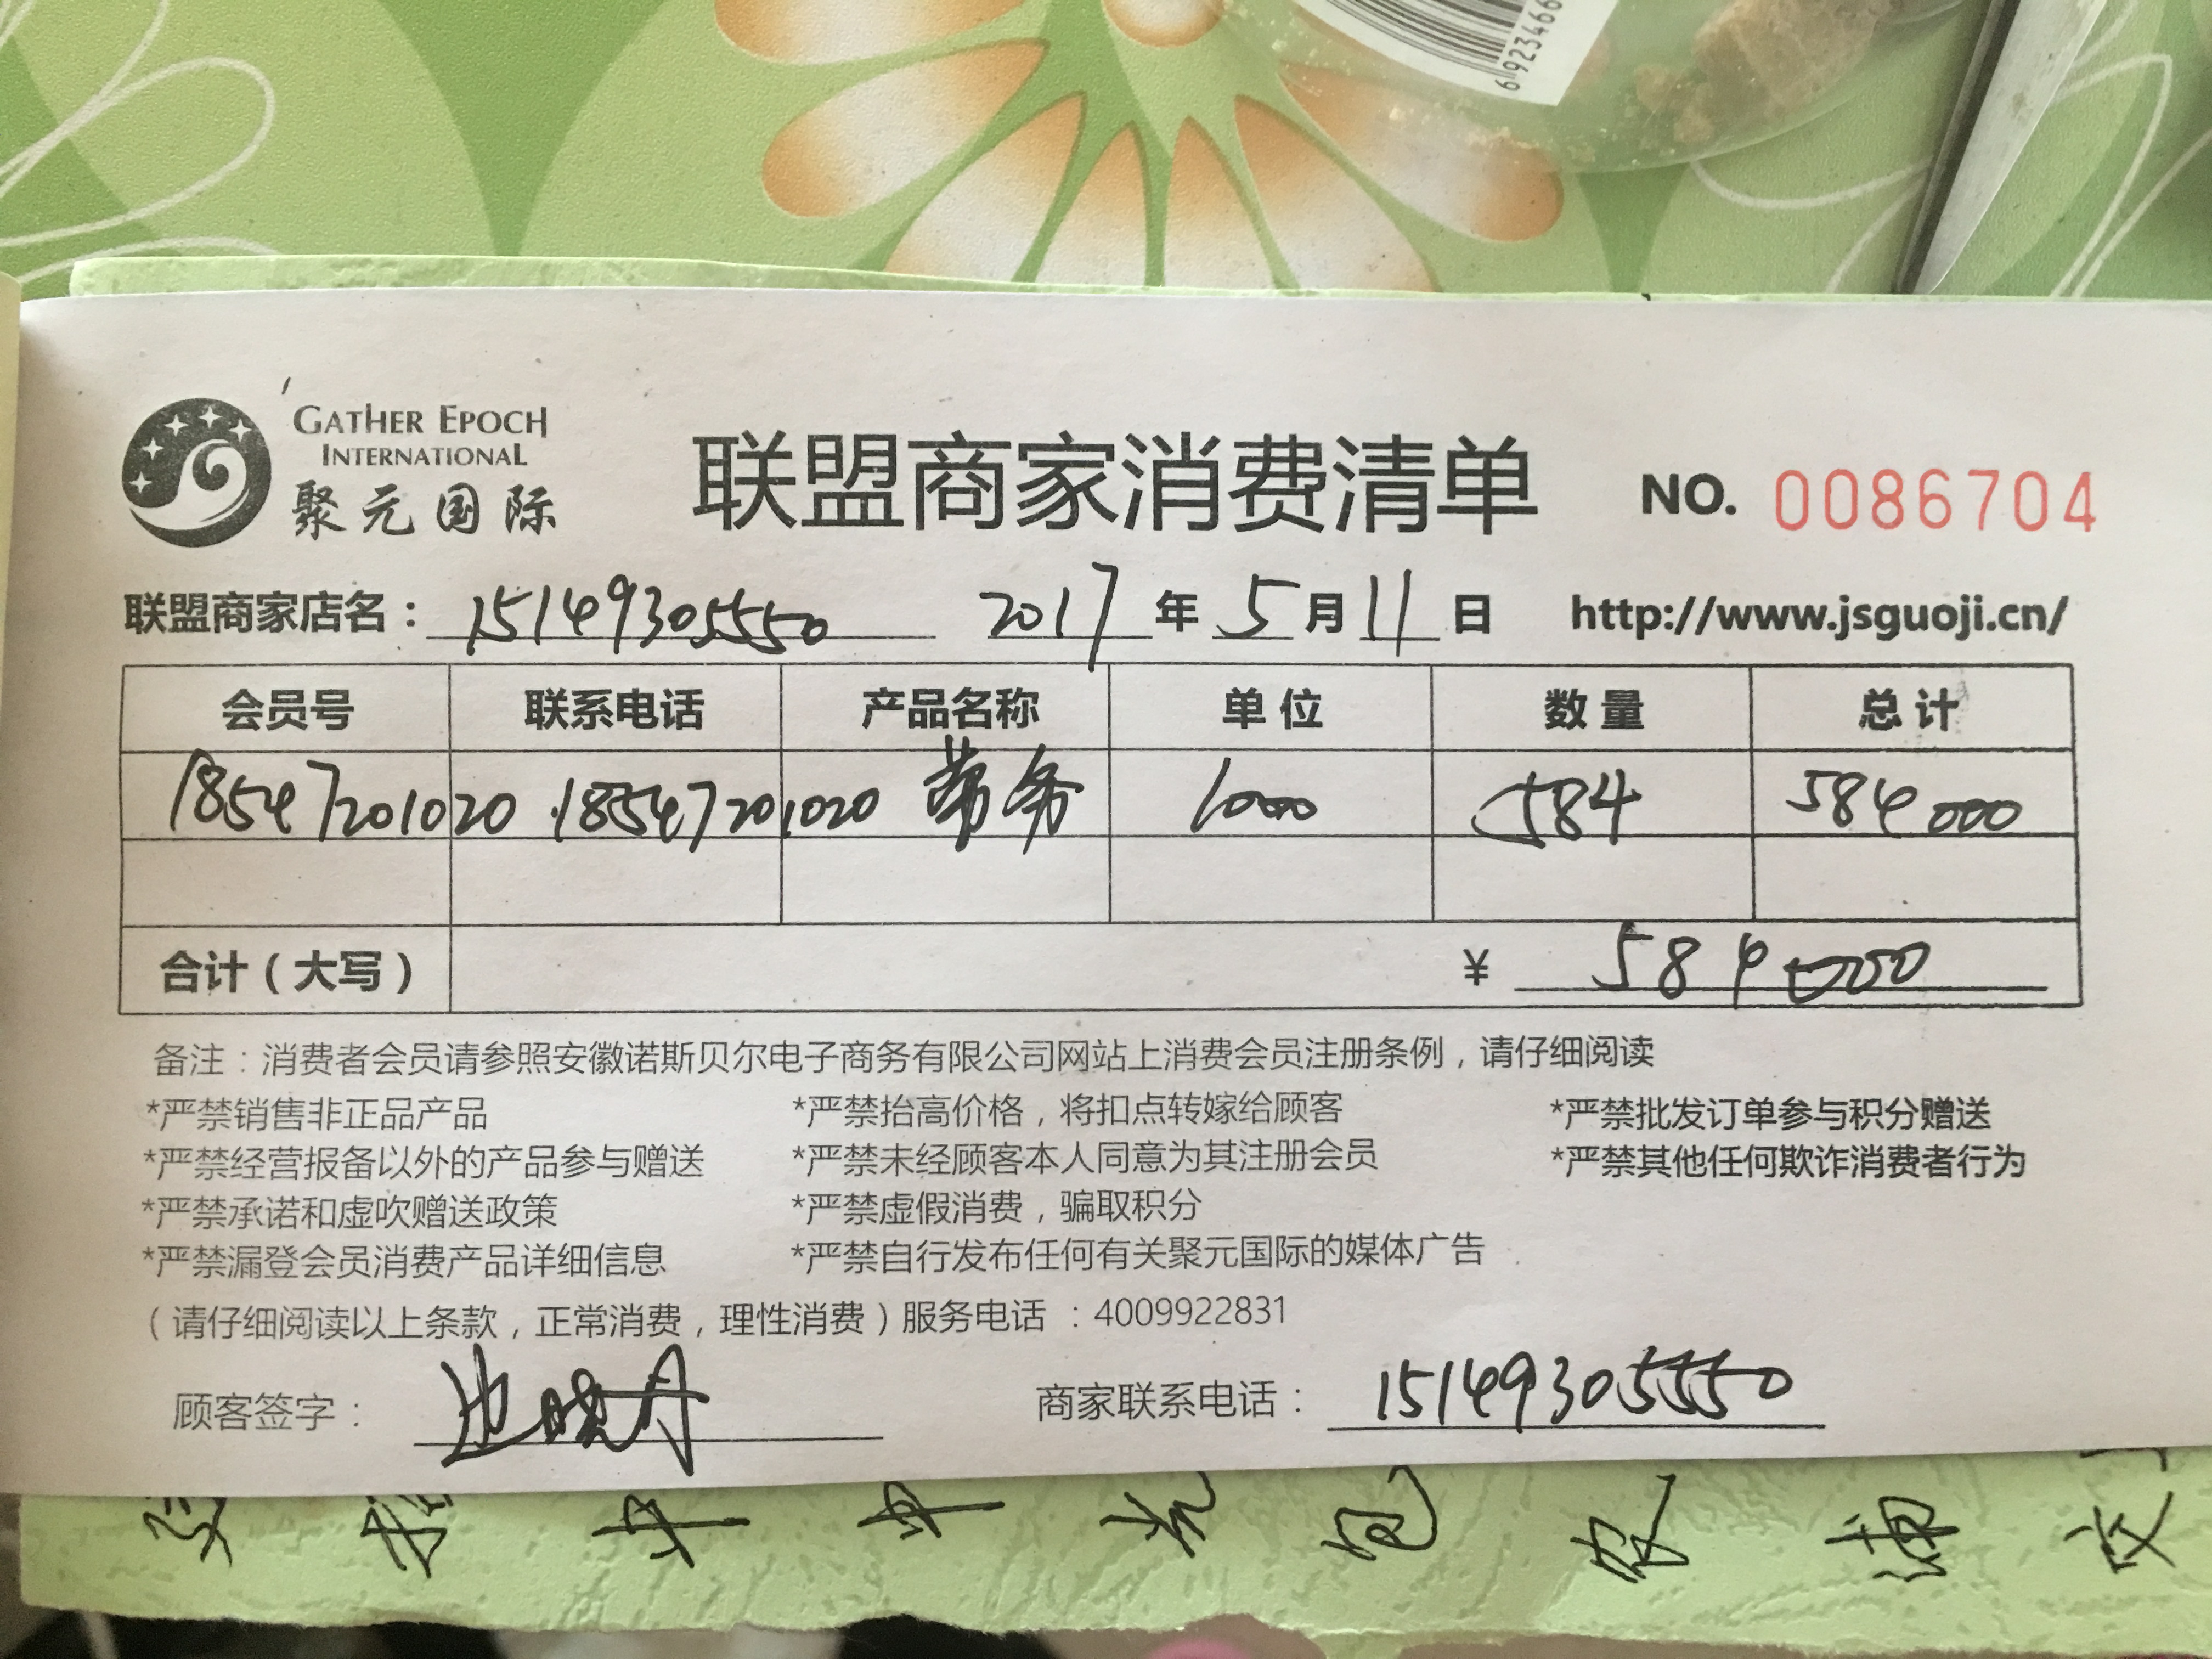 GATHER EPOCH
INTERNATIONAL
聚元国际
联盟商家消费清单 NO. 0086704
联盟商家店名：15149305550 2017年5月11日 http://www.jsguoji.cn/
会员号 联系电话 产品名称 单位 数量 总计
18547201020 18547201020 1000 584 584000
合计（大写） ¥ 584000
备注：消费者会员请参照安徽诺斯贝尔电子商务有限公司网站上消费会员注册条例，请仔细阅读
*严禁销售非正品产品 *严禁抬高价格，将扣点转嫁给顾客 *严禁批发订单参与积分赠送
*严禁经营报备以外的产品参与赠送 *严禁未经顾客本人同意为其注册会员 *严禁其他任何欺诈消费者行为
*严禁承诺和虚吹赠送政策 *严禁虚假消费，骗取积分
*严禁漏登会员消费产品详细信息 *严禁自行发布任何有关聚元国际的媒体广告
（请仔细阅读以上条款，正常消费，理性消费）服务电话：4009922831
顾客签字： 商家联系电话：15149305550
6 923466